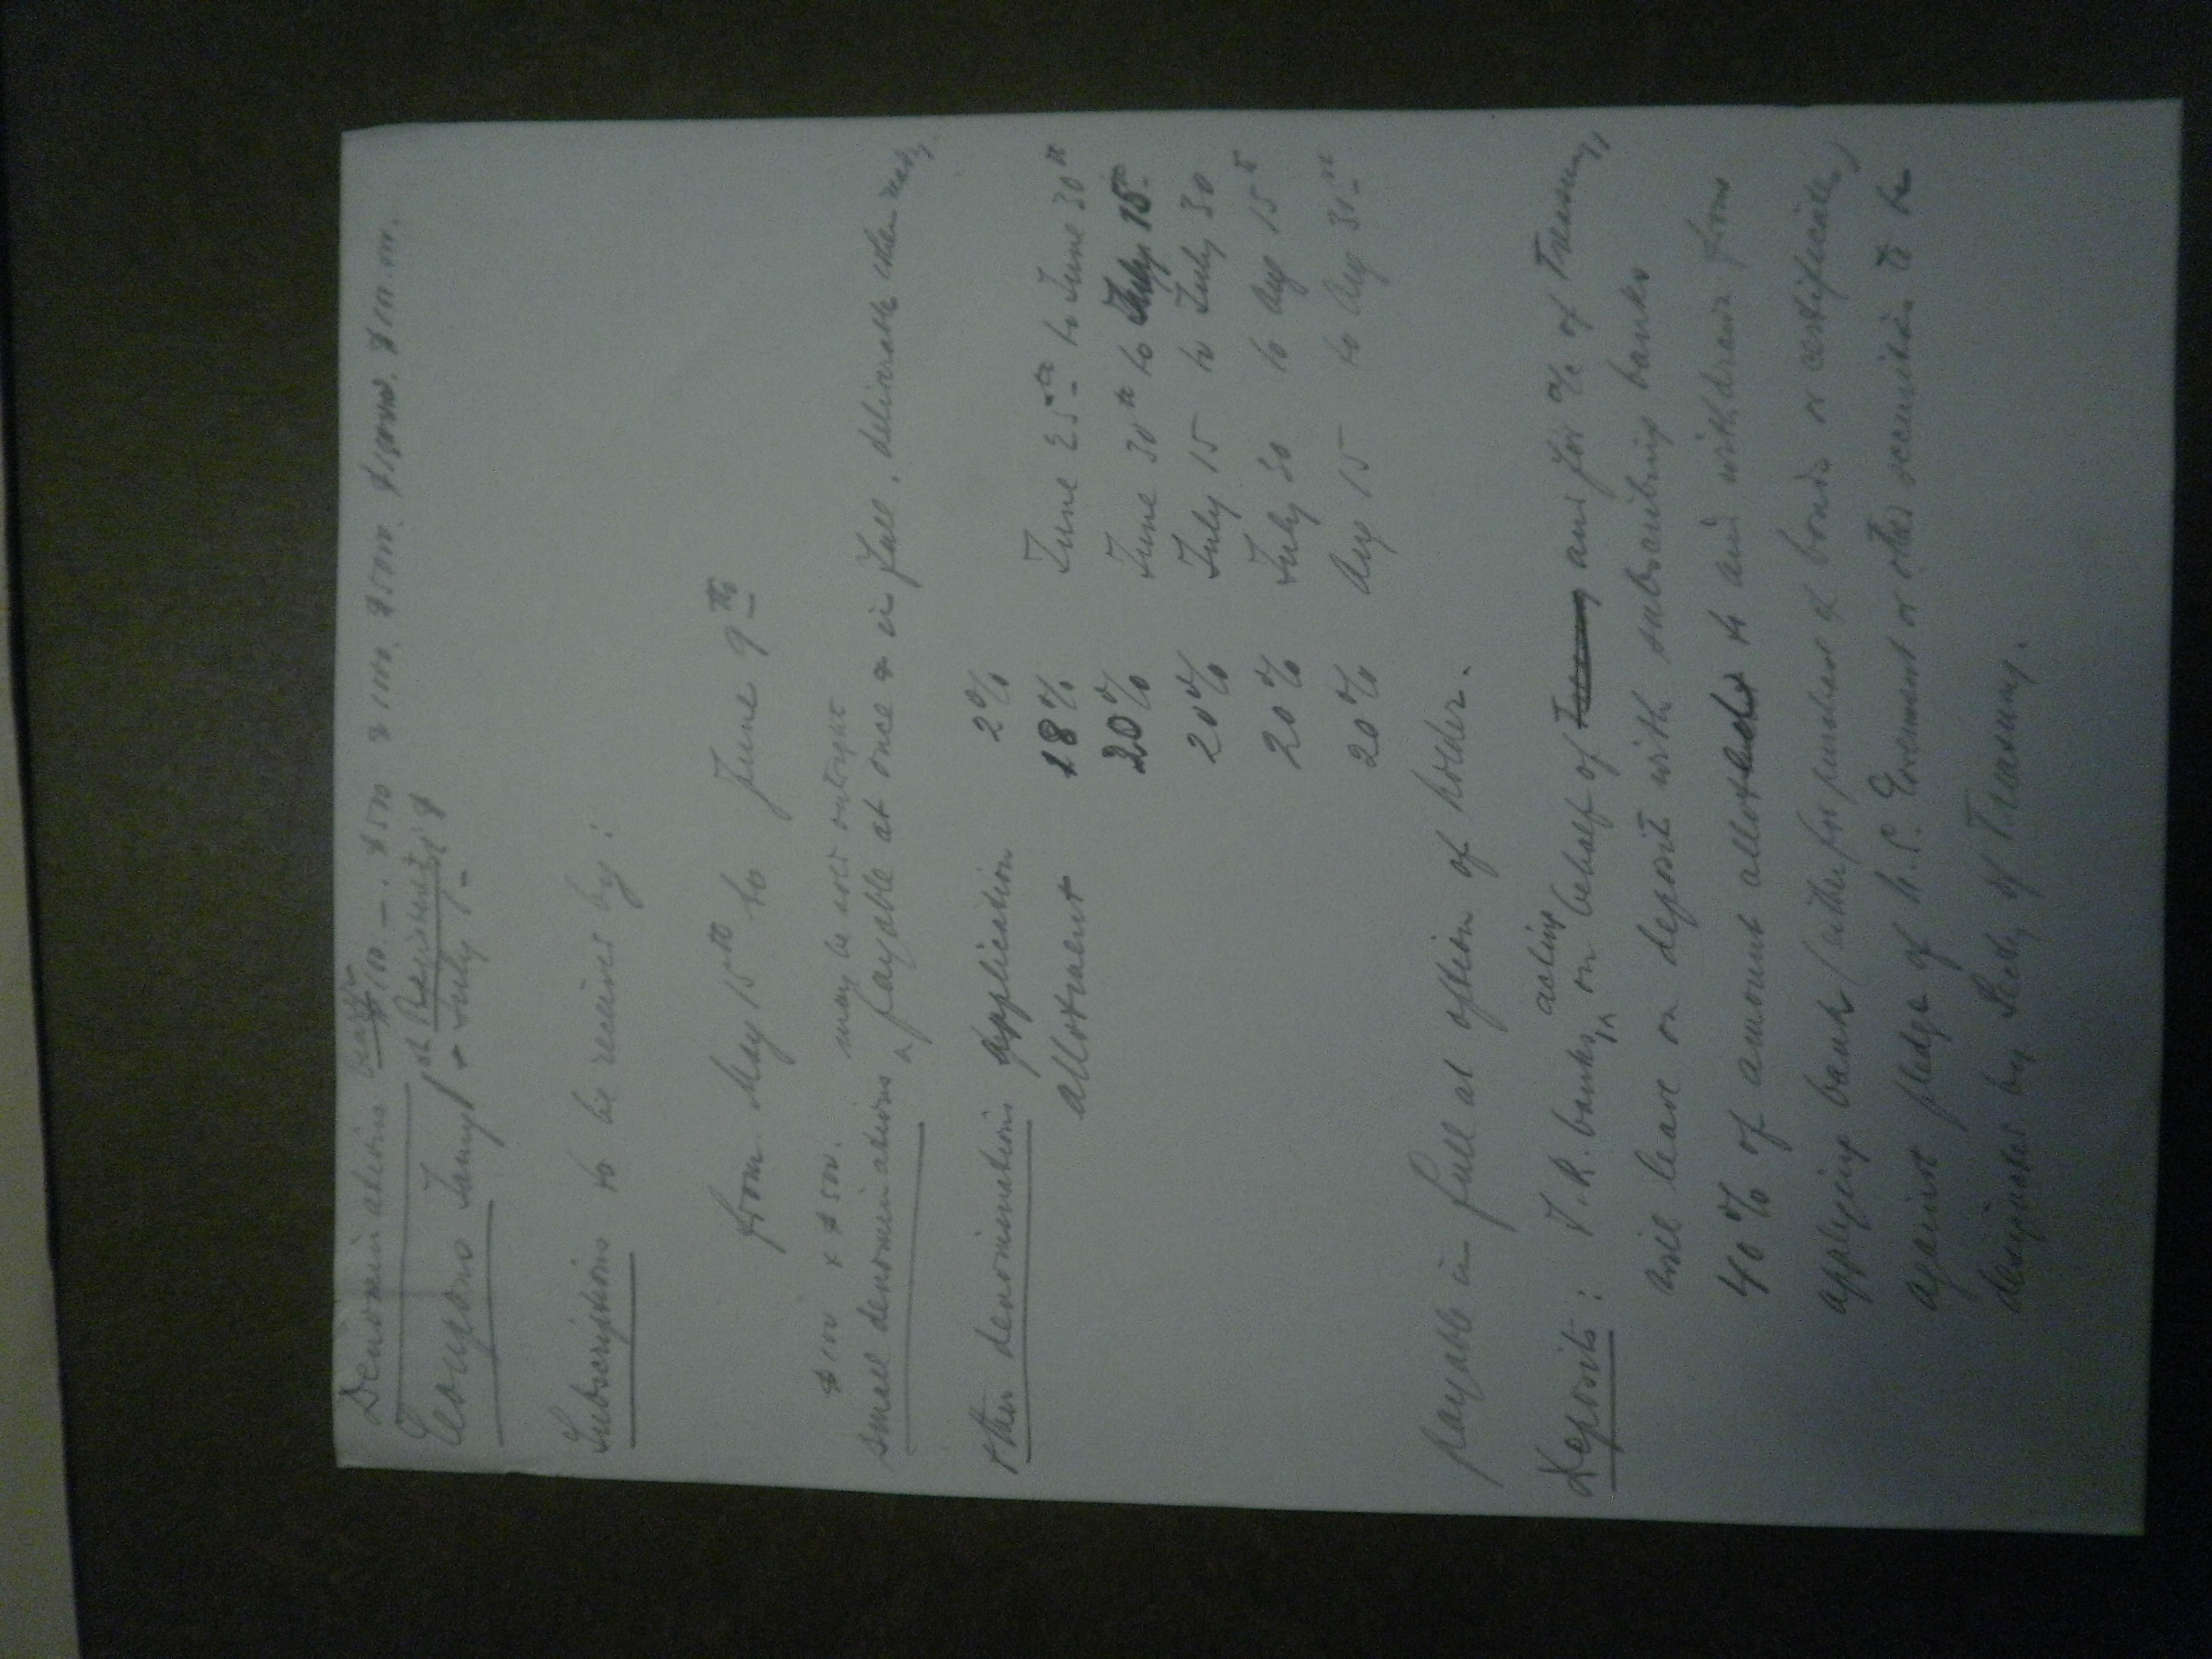 Denominations bearer $100 —. $500 $1000. $5000. $10000. $100.000.
or Registered $
Coupons Jany 1st & July -
Subscriptions to be received by:
from May 15th to June 9th
$100 & $500. may be sold outright
small denominations payable at once & in full, deliverable when ready.
other denominations application 2%
allotment 18% June 25th to June 30th
20% June 30th to July 15th
20% July 15 to July 30
20% July 30 to Aug 15th
20% Aug 15 to Aug 30th
payable in full at option of holder.
Deposits: F.R. banks, acting on behalf of and for a/c of Treasury,
will leave on deposit with subscribing banks
40% of amount allotted to and withdrawn from
applying bank (either for purchase of bonds or certificates)
against pledge of U.S. Government or other securities to be
designated by Secty of Treasury.